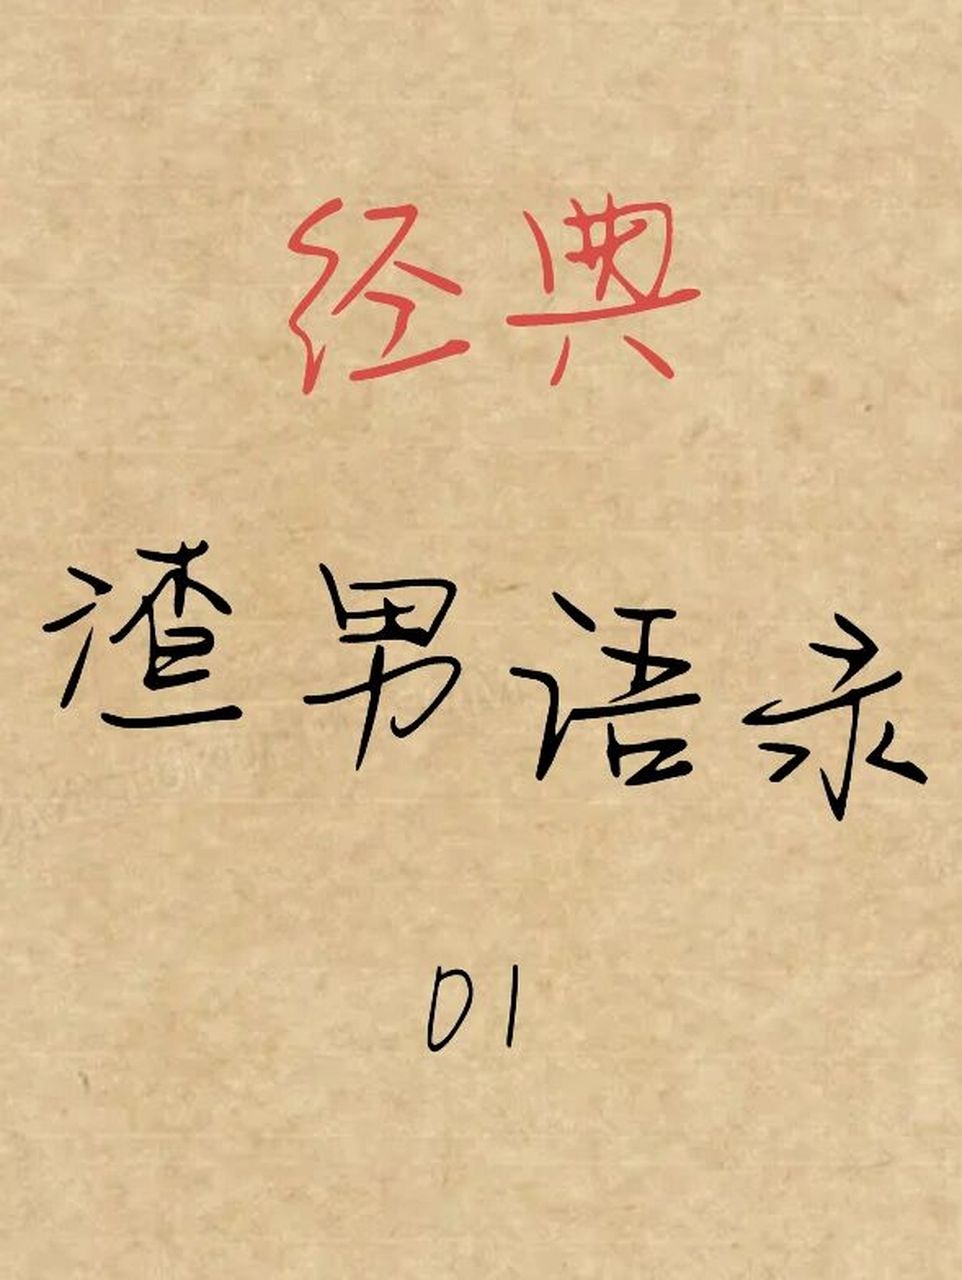 经典
渣男语录
01